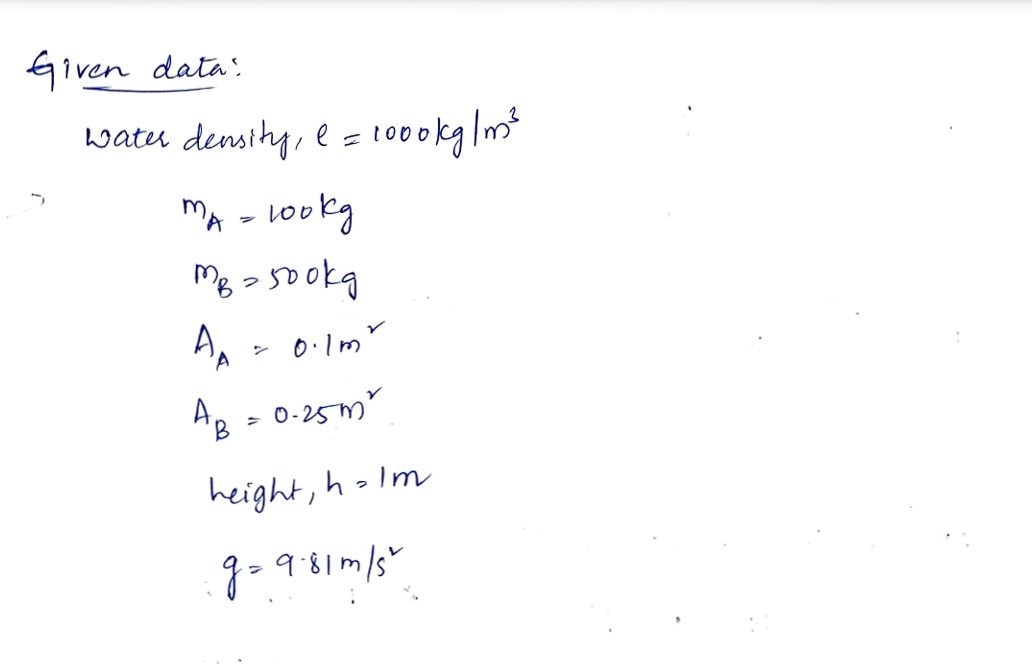 Given data:
water density, ρ = 1000kg/m³
m_A = 100kg
m_B = 500kg
A_A = 0.1m²
A_B = 0.25m²
height, h = 1m
g = 9.81m/s²